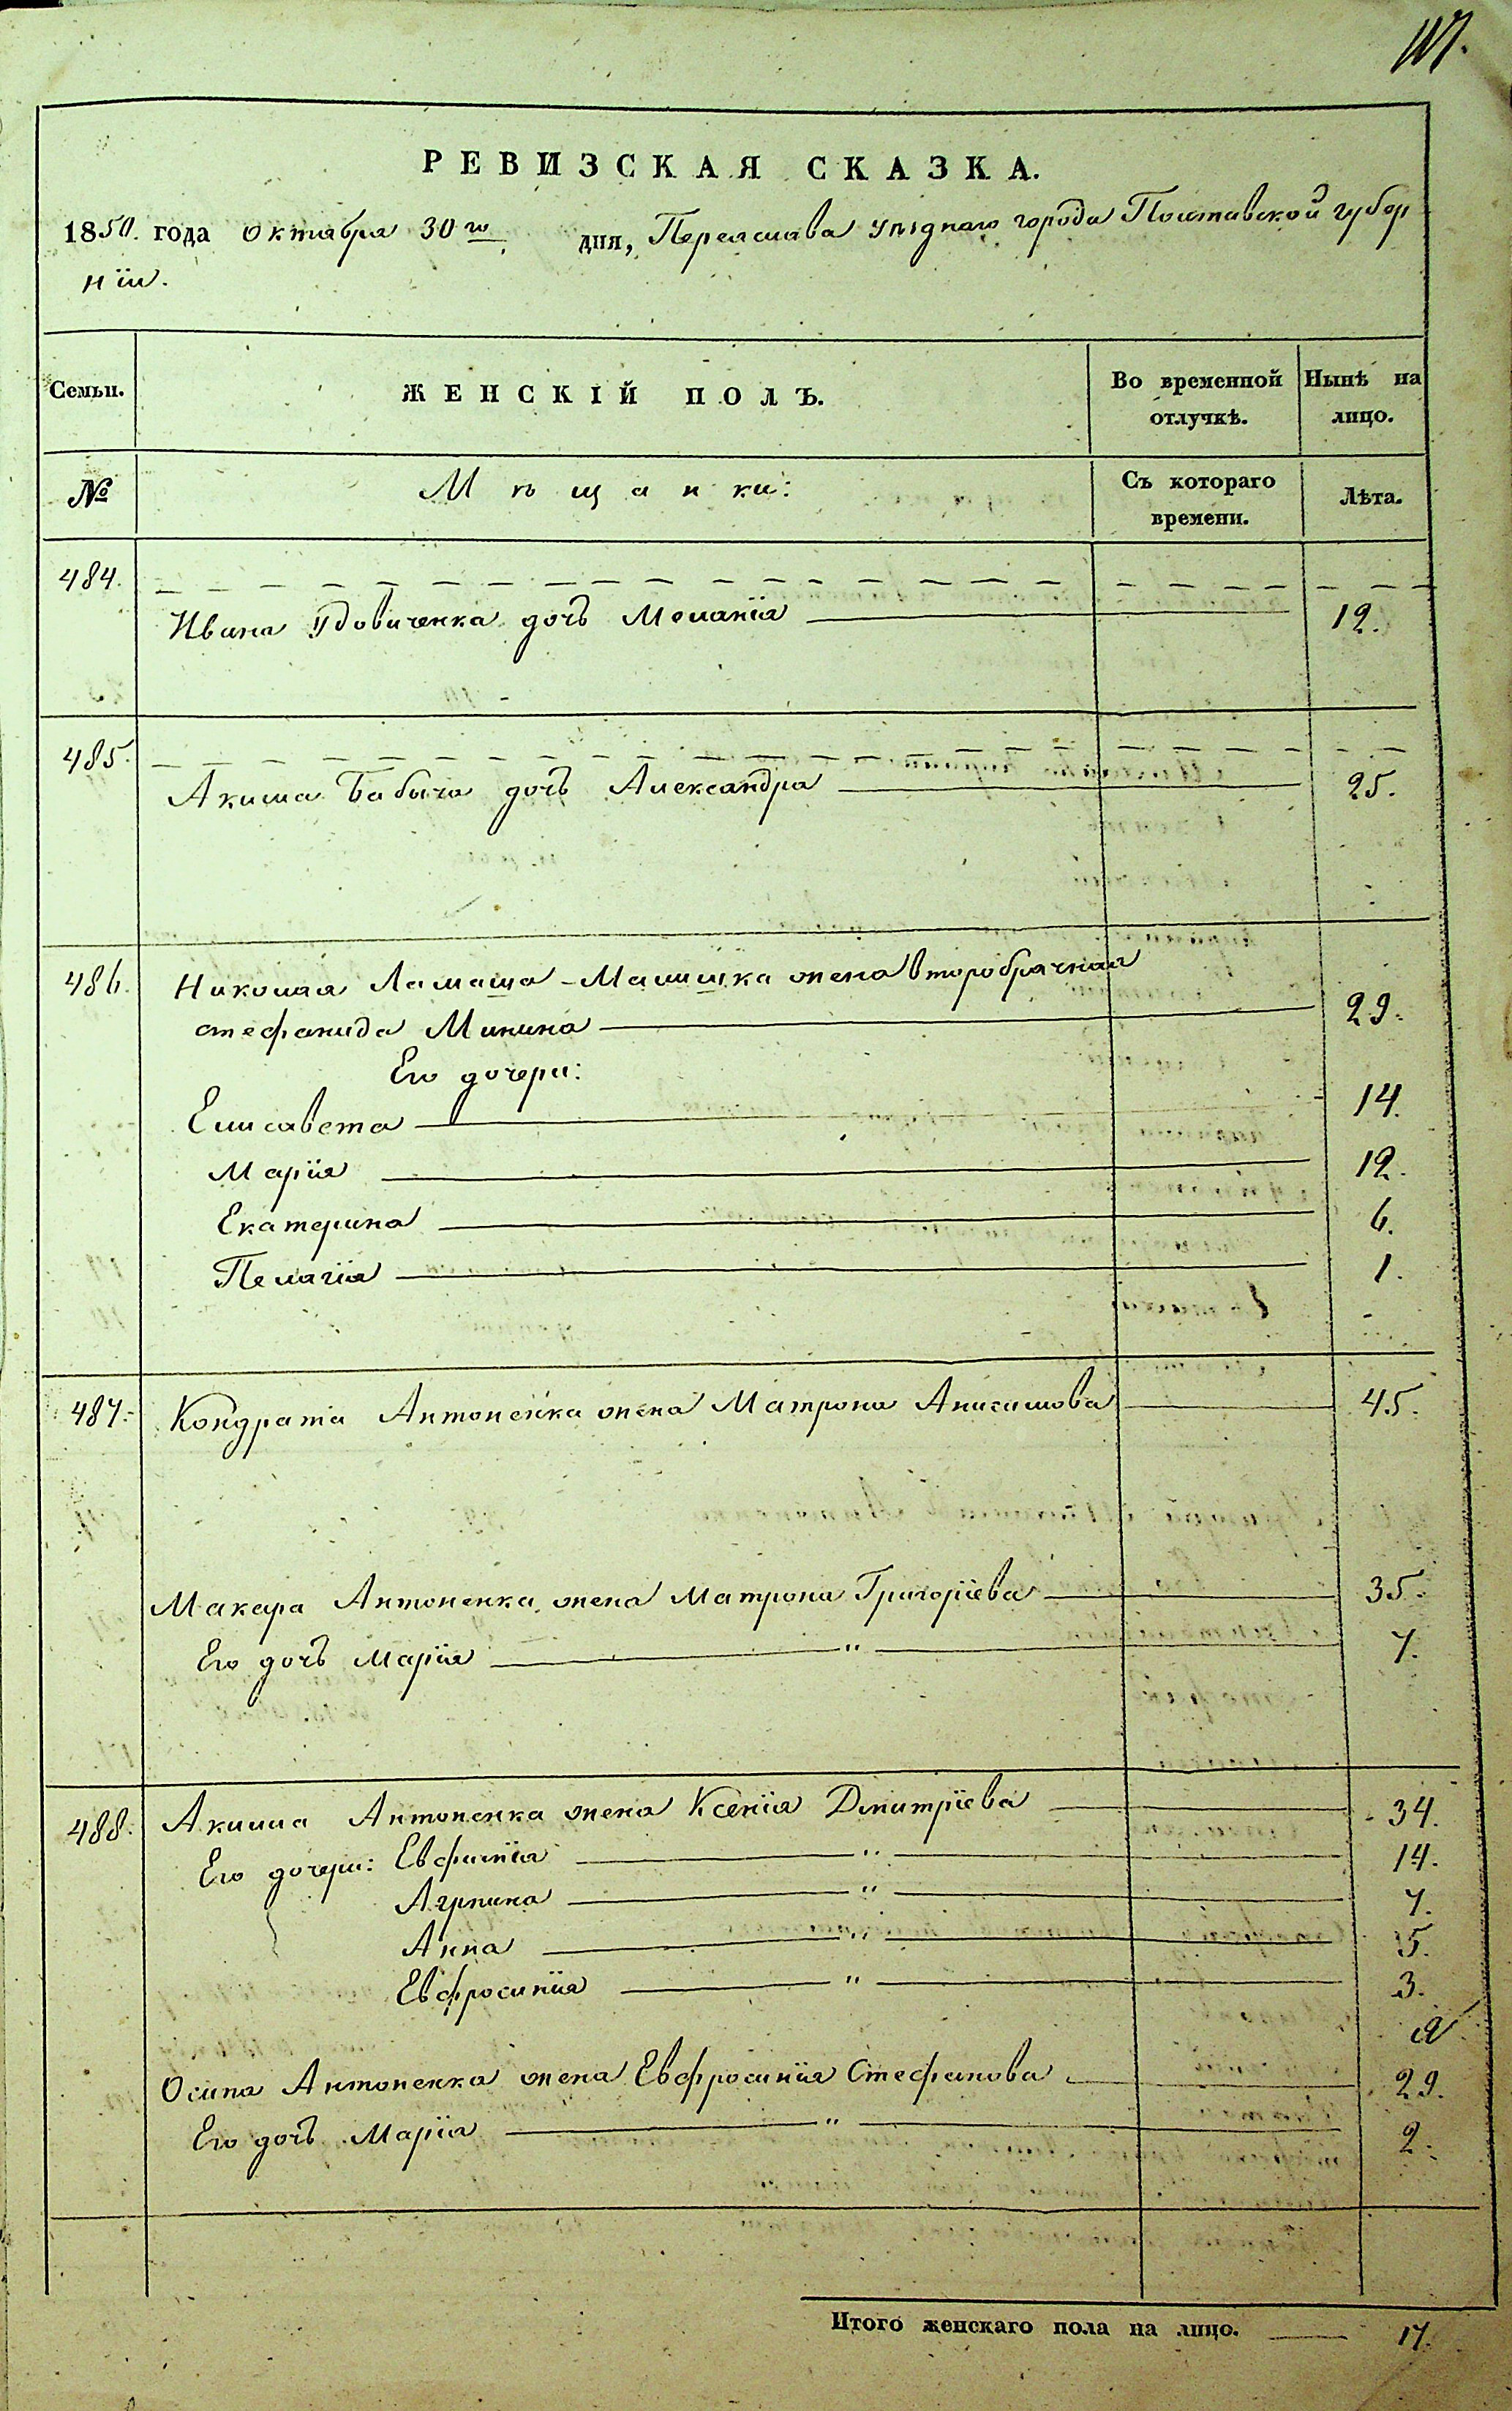 РЕВИЗСКАЯ СКАЗКА.
1850. года октября 30 го дня, Переяслава уѣзднаго города Полтавской губер
нiи.
Семьи. ЖЕНСКІЙ ПОЛЪ. Во временной отлучкѣ. Нынѣ на лицо.
№ Мѣщанки: Съ котораго времени. Лѣта.
484.
Ивана Удовиченка дочь Меланiя 12.
485.
Акима Бабыча дочь Александра 25.
486. Николая Ламаша-Малишка жена второбрачная
стефанида Минина 29.
Его дочери:
Елисавета 14.
Марiя 12.
Екатерина 6.
Пелагiя 1.
487. Кондрата Антоненка жена Матрона Анисимова 45.
Макара Антоненка жена Матрона Григорiева 35.
Его дочь Марiя " 7.
488. Акима Антоненка жена Ксенiя Дмитрiева 34.
Его дочери: Евфимiя " 14.
Агрпина " 7.
Анна " 5.
Евфросинiя " 3.
Осипа Антоненка жена Евфросинiя Стефанова 29.
Его дочь Марiя " 2.
Итого женскаго пола на лицо. 17.